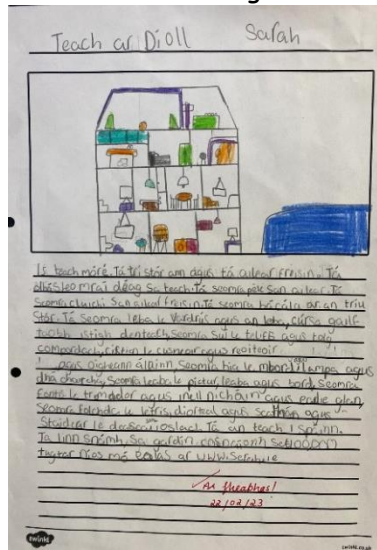 Teach ar Díoll Sarah
Is teach mór é. Tá trí stór ann agus tá áilear freisin. Tá
dhá sheomraí déag sa teach. Tá seomra pele san áilear. Tá
seomra cluichí san áilear freisin. Tá seomra bácála ar an tríu
Stór. Tá seomra leba le vardrús agus an leba, cúrsa gailf
taobh istigh den teach, seomra suí le teilifís agus tolg
compordach, cistin le cuisneoir agus reoiteoir
agus oigheann álainn, seomra bia le mbord, lampa, agus
dhá chairde, seomra leaba le pictur, leaba agus bord, seomra
le agus inell níocháin agus
seomra folctha le leifris, doirteal agus scathán agus
Staidear le deasc Tá an teach i
Tá linn snámh, Sa gairdín
tugtar níos mó eolais ar www.Sarah.ie
Ar fheabhas!
22/02/23
twinkl
twinkl.co.uk